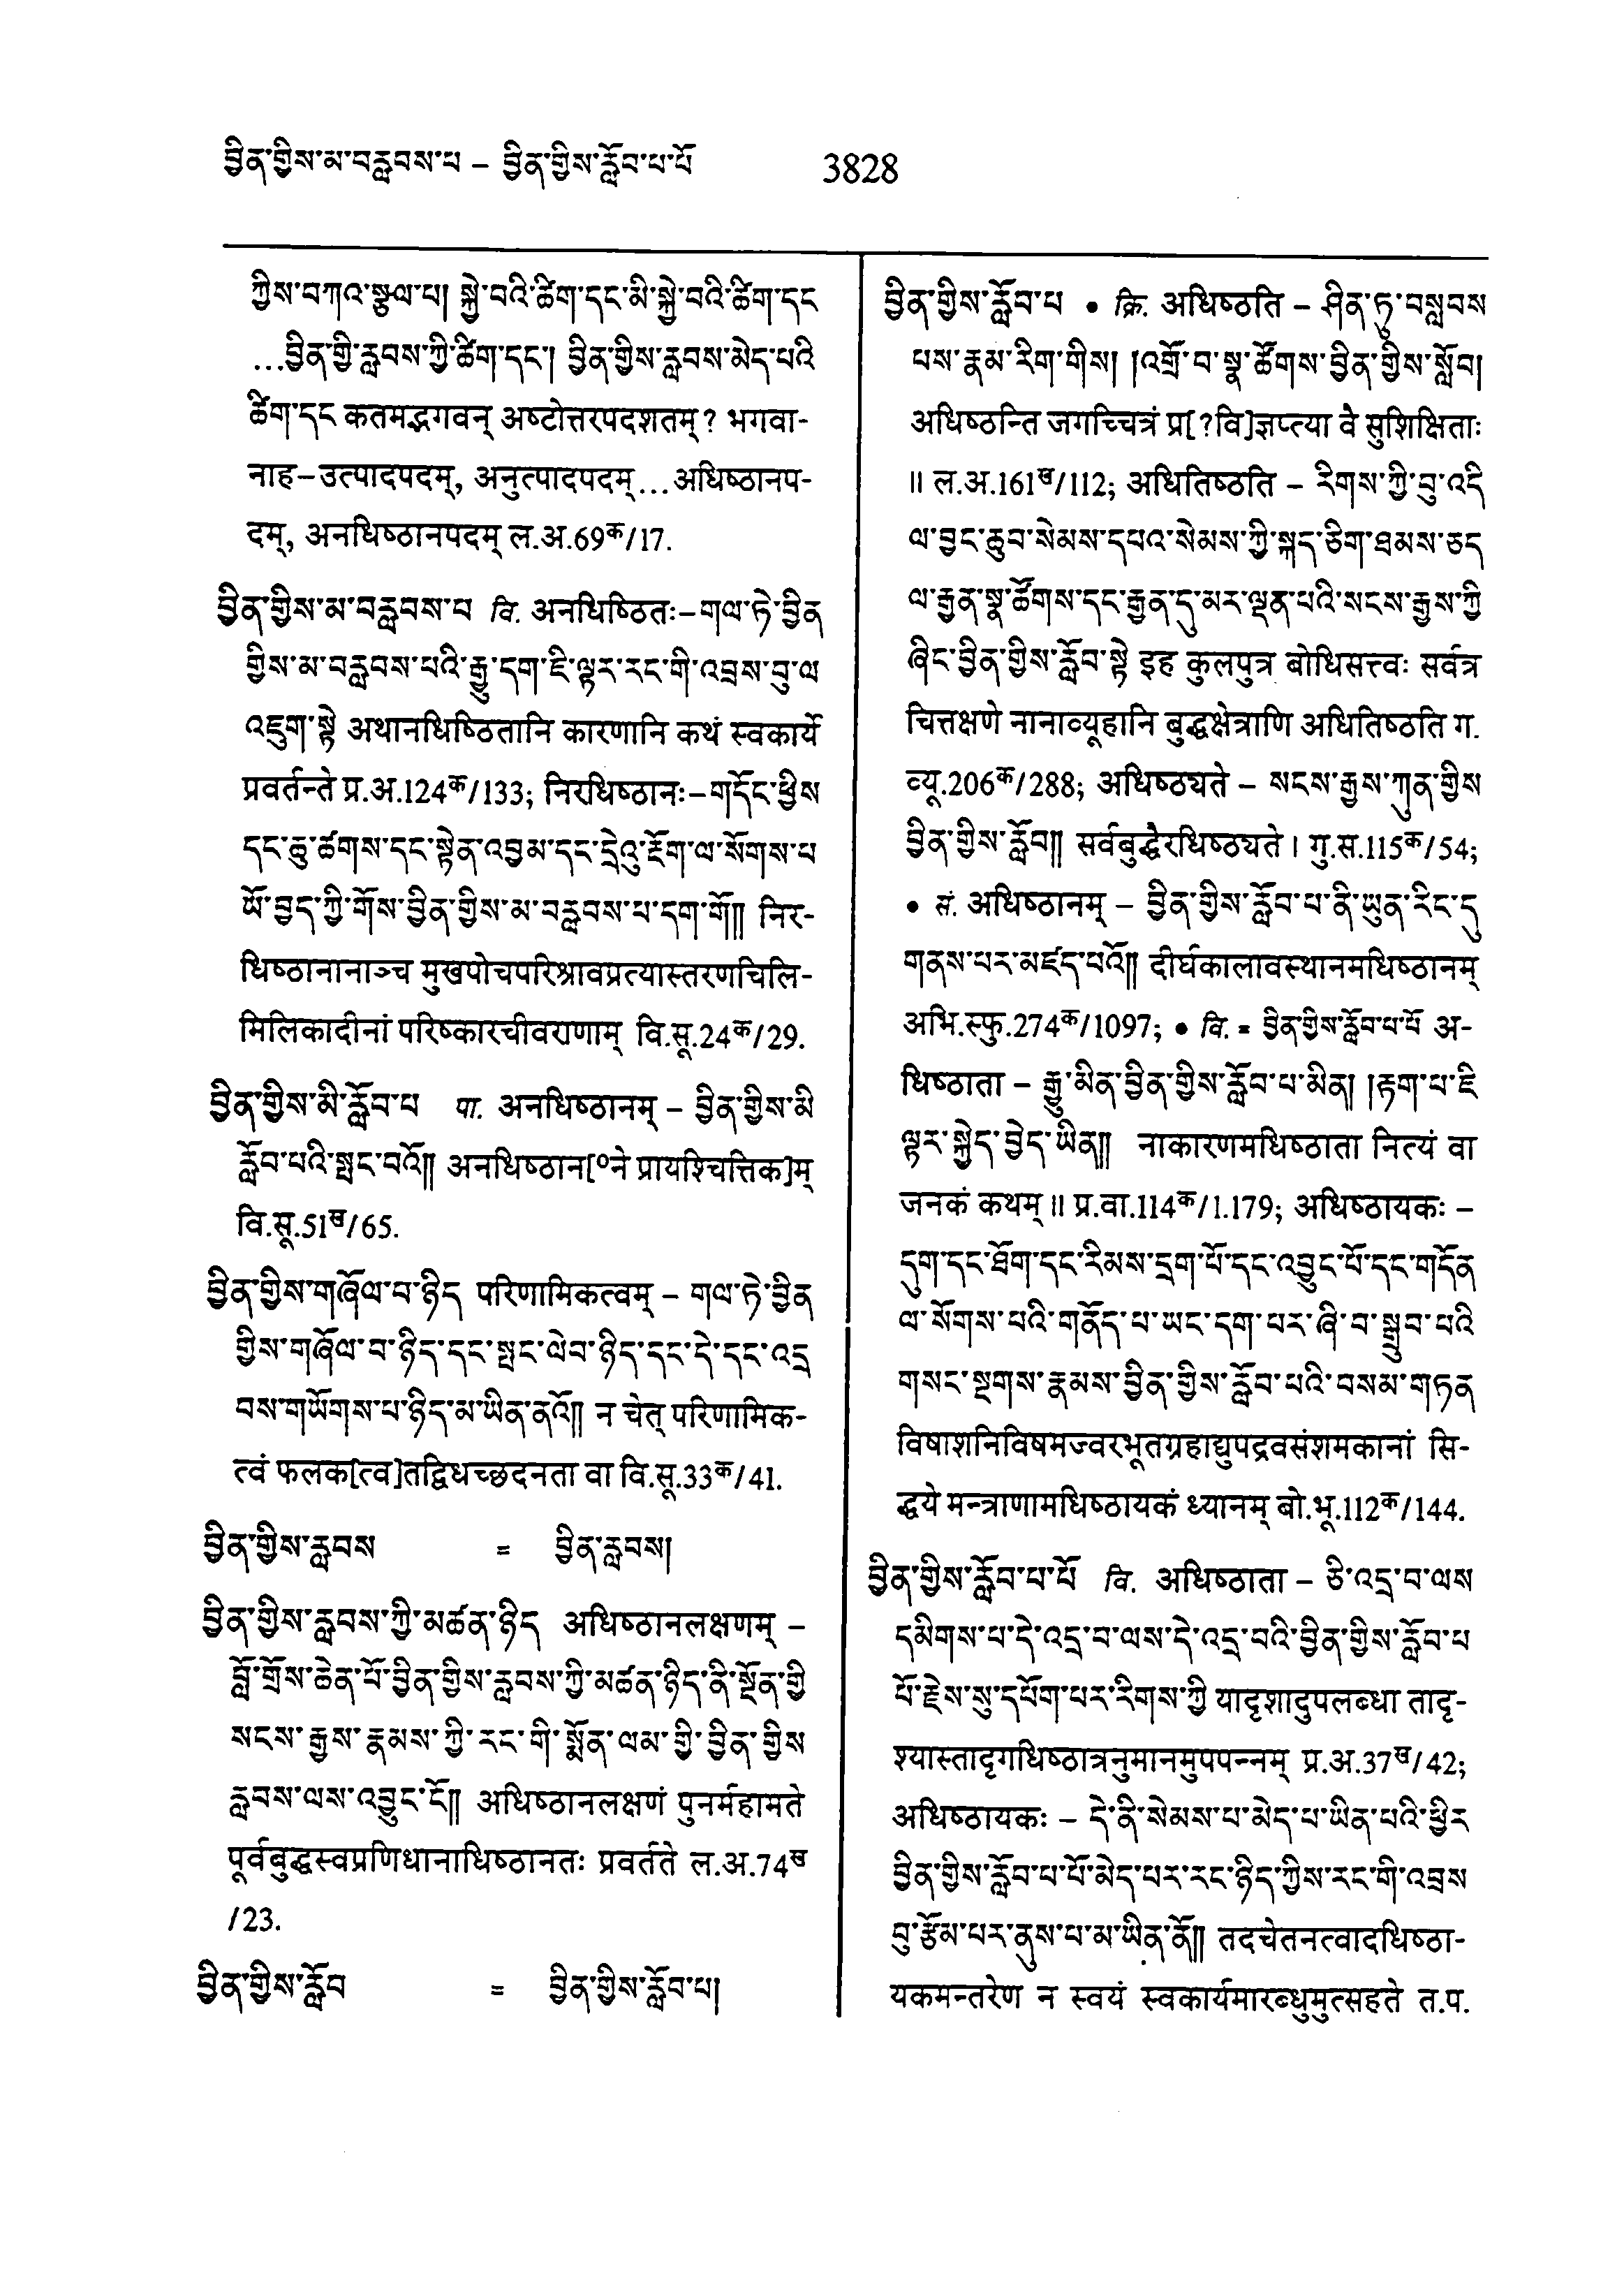 བྱིན་གྱིས་མ་བརླབས་པ – བྱིན་གྱིས་རློབ་པ་པོ 3828
ཀྱིས་བཀའ་སྩལ་པ། སྐྱེ་བའི་ཚིག་དང་མི་སྐྱེ་བའི་ཚིག་དང
...བྱིན་གྱི་རླབས་ཀྱི་ཚིག་དང་། བྱིན་གྱིས་རླབས་མེད་པའི
ཚིག་དང कतमद्भगवन् अष्टोत्तरपदशतम् ? भगवा-
नाह–उत्पादपदम्, अनुत्पादपदम्...अधिष्ठानप-
दम्, अनधिष्ठानपदम् ल.अ.69क/17.
བྱིན་གྱིས་མ་བརླབས་པ वि. अनधिष्ठितः–གལ་ཏེ་བྱིན
གྱིས་མ་བརླབས་པའི་རྒྱུ་དག་ཇི་ལྟར་རང་གི་འབྲས་བུ་ལ
འཇུག་སྟེ अथानधिष्ठितानि कारणानि कथं स्वकार्ये
प्रवर्तन्ते प्र.अ.124क/133; निरधिष्ठानः–གདོང་ཕྱིས
དང་ཆུ་ཚགས་དང་སྟེན་འབྱམ་དང་དྲེའུ་རྔོག་ལ་སོགས་པ
ཡོ་བྱད་ཀྱི་གོས་བྱིན་གྱིས་མ་བརླབས་པ་དག་གོ།། निर-
धिष्ठानानाञ्च मुखपोचपरिश्रावप्रत्यास्तरणचिलि-
मिलिकादीनां परिष्कारचीवराणाम् वि.सू.24क/29.
བྱིན་གྱིས་མི་རློབ་པ पा. अनधिष्ठानम् – བྱིན་གྱིས་མི
རློབ་པའི་སྤང་བའོ།། अनधिष्ठान[०ने प्रायश्चित्तिक]म्
वि.सू.51ख/65.
བྱིན་གྱིས་གཞོལ་བ་ཉིད परिणामिकत्वम् – གལ་ཏེ་བྱིན
གྱིས་གཞོལ་བ་ཉིད་དང་སྤང་ལེབ་ཉིད་དང་དེ་དང་འདྲ
བས་གཡོགས་པ་ཉིད་མ་ཡིན་ནའོ།། न चेत् परिणामिक-
त्वं फलक[त्व]तद्विधच्छदनता वा वि.सू.33क/41.
བྱིན་གྱིས་རླབས = བྱིན་རླབས།
བྱིན་གྱིས་རླབས་ཀྱི་མཚན་ཉིད अधिष्ठानलक्षणम् –
བློ་གྲོས་ཆེན་པོ་བྱིན་གྱིས་རླབས་ཀྱི་མཚན་ཉིད་ནི་སྔོན་གྱི
སངས་རྒྱས་རྣམས་ཀྱི་རང་གི་སྨོན་ལམ་གྱི་བྱིན་གྱིས
རླབས་ལས་འབྱུང་ངོ།། अधिष्ठानलक्षणं पुनर्महामते
पूर्वबुद्धस्वप्रणिधानाधिष्ठानतः प्रवर्तते ल.अ.74ख
/23.
བྱིན་གྱིས་རློབ = བྱིན་གྱིས་རློབ་པ།
བྱིན་གྱིས་རློབ་པ • क्रि. अधिष्ठति – ཤིན་ཏུ་བསླབས
པས་རྣམ་རིག་གིས། །འགྲོ་བ་སྣ་ཚོགས་བྱིན་གྱིས་སློབ།
अधिष्ठन्ति जगच्चित्रं प्र[?वि]ज्ञप्त्या वे सुशिक्षिताः
॥ ल.अ.161ख/112; अधितिष्ठति – རིགས་ཀྱི་བུ་འདི
ལ་བྱང་ཆུབ་སེམས་དཔའ་སེམས་ཀྱི་སྐད་ཅིག་ཐམས་ཅད
ལ་རྒྱན་སྣ་ཚོགས་དང་རྒྱན་དུ་མར་ལྡན་པའི་སངས་རྒྱས་ཀྱི
ཞིང་བྱིན་གྱིས་རློབ་སྟེ इह कुलपुत्र बोधिसत्त्वः सर्वत्र
चित्तक्षणे नानाव्यूहानि बुद्धक्षेत्राणि अधितिष्ठति ग.
व्यू.206क/288; अधिष्ठ्यते – སངས་རྒྱས་ཀུན་གྱིས
བྱིན་གྱིས་རློབ།། सर्वबुद्धैरधिष्ठ्यते । गु.स.115क/54;
• सं. अधिष्ठानम् – བྱིན་གྱིས་རློབ་པ་ནི་ཡུན་རིང་དུ
གནས་པར་མཛད་པའོ།། दीर्घकालावस्थानमधिष्ठानम्
अभि.स्फु.274क/1097; • वि. = བྱིན་གྱིས་རློབ་པ་པོ अ-
धिष्ठाता – རྒྱུ་མིན་བྱིན་གྱིས་རློབ་པ་མིན། །རྟག་པ་ཇི
ལྟར་སྐྱེད་བྱེད་ཡིན།། नाकारणमधिष्ठाता नित्यं वा
जनकं कथम् ॥ प्र.वा.114क/1.179; अधिष्ठायकः –
དུག་དང་ཐོག་དང་རིམས་དྲག་པོ་དང་འབྱུང་པོ་དང་གདོན
ལ་སོགས་པའི་གནོད་པ་ཡང་དག་པར་ཞི་བ་སྒྲུབ་པའི
གསང་སྔགས་རྣམས་བྱིན་གྱིས་རློབ་པའི་བསམ་གཏན
विषाशनिविषमज्वरभूतग्रहाद्युपद्रवसंशमकानां सि-
द्धये मन्त्राणामधिष्ठायकं ध्यानम् बो.भू.112क/144.
བྱིན་གྱིས་རློབ་པ་པོ वि. अधिष्ठाता – ཅི་འདྲ་བ་ལས
དམིགས་པ་དེ་འདྲ་བ་ལས་དེ་འདྲ་བའི་བྱིན་གྱིས་རློབ་པ
པོ་རྗེས་སུ་དཔོག་པར་རིགས་ཀྱི यादृशादुपलब्धा तादृ-
श्यास्तादृगधिष्ठात्रनुमानमुपपन्नम् प्र.अ.37ख/42;
अधिष्ठायकः – དེ་ནི་སེམས་པ་མེད་པ་ཡིན་པའི་ཕྱིར
བྱིན་གྱིས་རློབ་པ་པོ་མེད་པར་རང་ཉིད་ཀྱིས་རང་གི་འབྲས
བུ་རྩོམ་པར་ནུས་པ་མ་ཡིན་ནོ།། तदचेतनत्वादधिष्ठा-
यकमन्तरेण न स्वयं स्वकार्यमारब्धुमुत्सहते त.प.